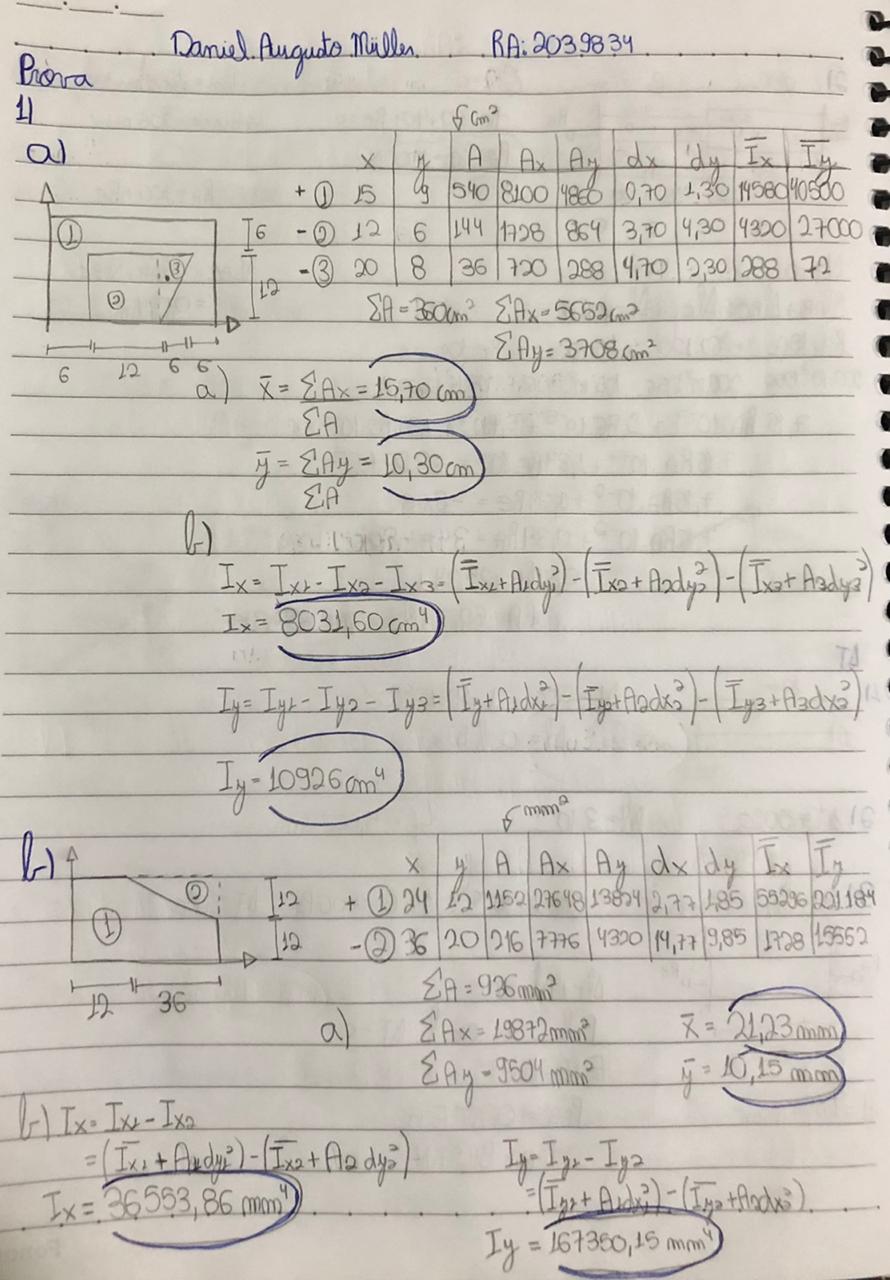 Daniel Augusto Müller RA: 2039834
Prova
1)
↓cm²
a)
x y A Ax Ay dx dy I̅x I̅y
+ ① 15 9 540 8100 4860 0,70 1,30 14580 40500
- ② 12 6 144 1728 864 3,70 4,30 4320 27000
- ③ 20 8 36 720 288 4,70 2,30 288 72
① ② ③
6
12
6 12 6 6
ΣA = 360cm² ΣAx = 5652cm²
ΣAy = 3708cm²
a) x̅ = ΣAx = 15,70 cm
ΣA
y̅ = ΣAy = 10,30cm
ΣA
b)
Ix = Ix1 - Ix2 - Ix3 = (I̅x1 + A1dy1²) - (I̅x2 + A2dy2²) - (I̅x3 + A3dy3²)
Ix = 8031,60cm⁴
Iy = Iy1 - Iy2 - Iy3 = (I̅y + A1dx1²) - (I̅y2 + A2dx2²) - (I̅y3 + A3dx3²)
Iy = 10926cm⁴
↓mm²
b)
x y A Ax Ay dx dy I̅x I̅y
+ ① 24 12 1152 27648 13824 2,77 1,85 55296 221184
- ② 36 20 216 7776 4320 14,77 9,85 1728 15552
① ②
12
12
12 36
ΣA = 936mm²
a) ΣAx = 19872mm² x̅ = 21,23 mm
ΣAy = 9504 mm² y̅ = 10,15 mm
b) Ix = Ix1 - Ix2
= (I̅x1 + A1dy1²) - (I̅x2 + A2 dy2²)
Ix = 36553,86 mm⁴
Iy = Iy1 - Iy2
= (I̅y1 + A1dx1²) - (I̅y2 + A2dx2²)
Iy = 167350,15 mm⁴